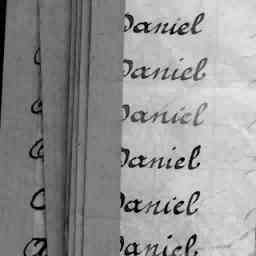 Daniel
Daniel
Daniel
Daniel
Daniel
Daniel